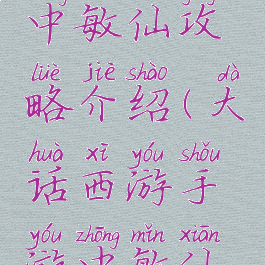 中敏仙攻
lüè jiè shào dà
略介绍(大
huà xī yóu shǒu
话西游手
yóu zhōng mǐn xiān
游中敏仙